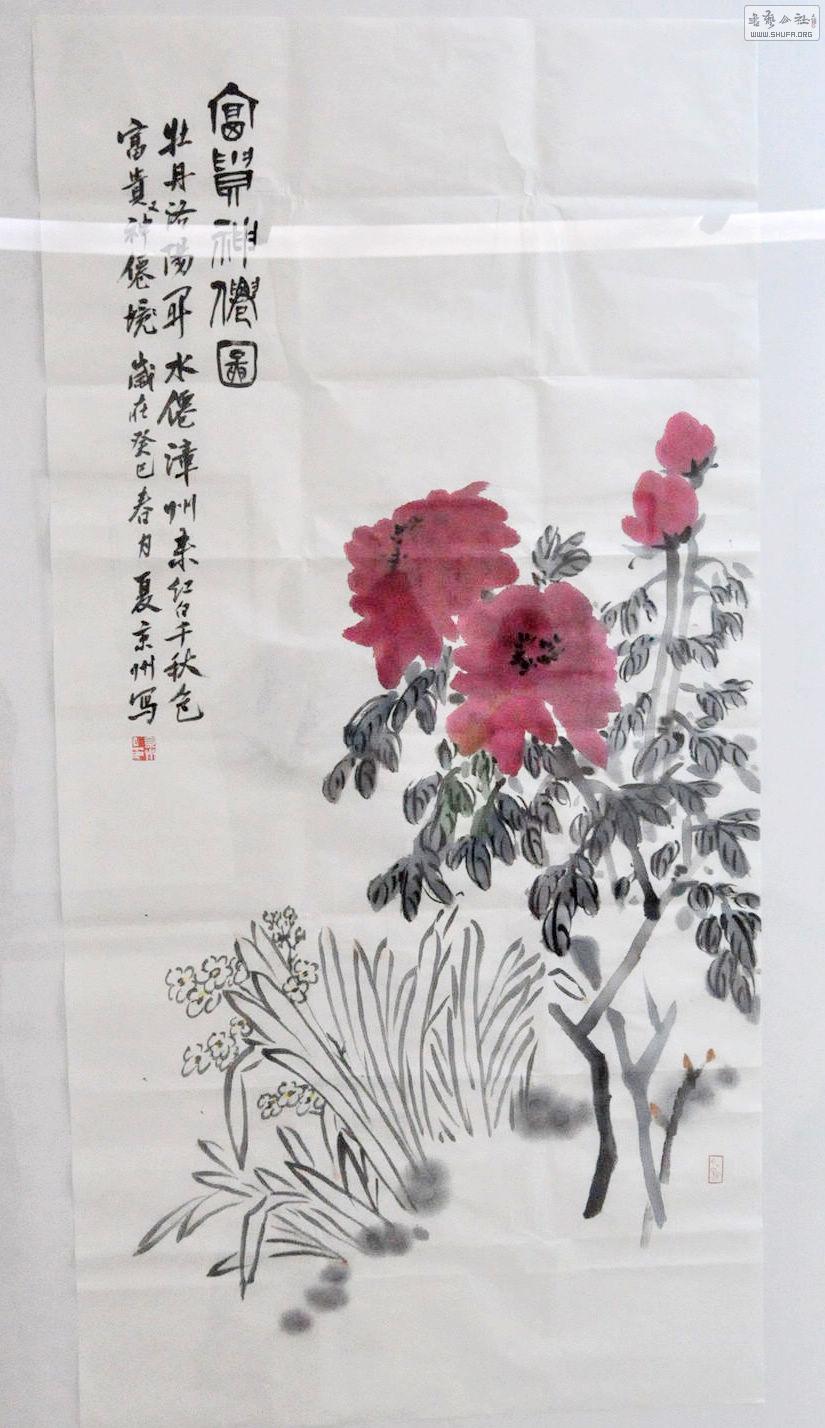 富貴神僊圖
牡丹洛陽開水僊漳州来红白千秋色
富貴又神僊境歲在癸巳春月夏京州写
書法公社
WWW.SHUFA.ORG